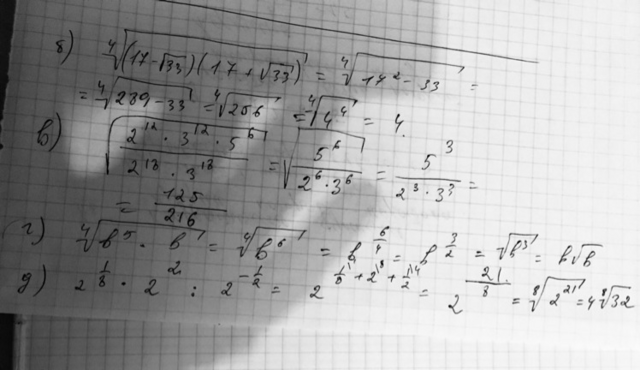 б) ⁴√((17-√33)(17+√33)) = ⁴√(17² - 33) =
= ⁴√(289-33) = ⁴√256 = ⁴√4⁴ = 4.
в) √((2¹² · 3¹² · 5⁶)/(2¹⁸ · 3¹⁸)) = √(5⁶/(2⁶ · 3⁶)) = 5³/(2³ · 3³) =
= 125/216
г) ⁴√(b⁵ · b) = ⁴√b⁶ = b^(6/4) = b^(3/2) = √b³ = b√b
д) 2^(1/8) · 2² : 2^(-1/2) = 2^(1/8 + 2 + 1/2) = 2^(21/8) = ⁸√2²¹ = 4⁸√32